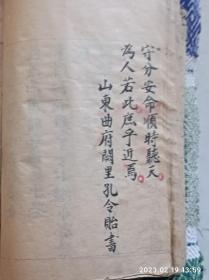 守分安命順時聽天
為人若此庶乎近焉
山東曲府闕里孔令貽書
2023.02.19 13:59